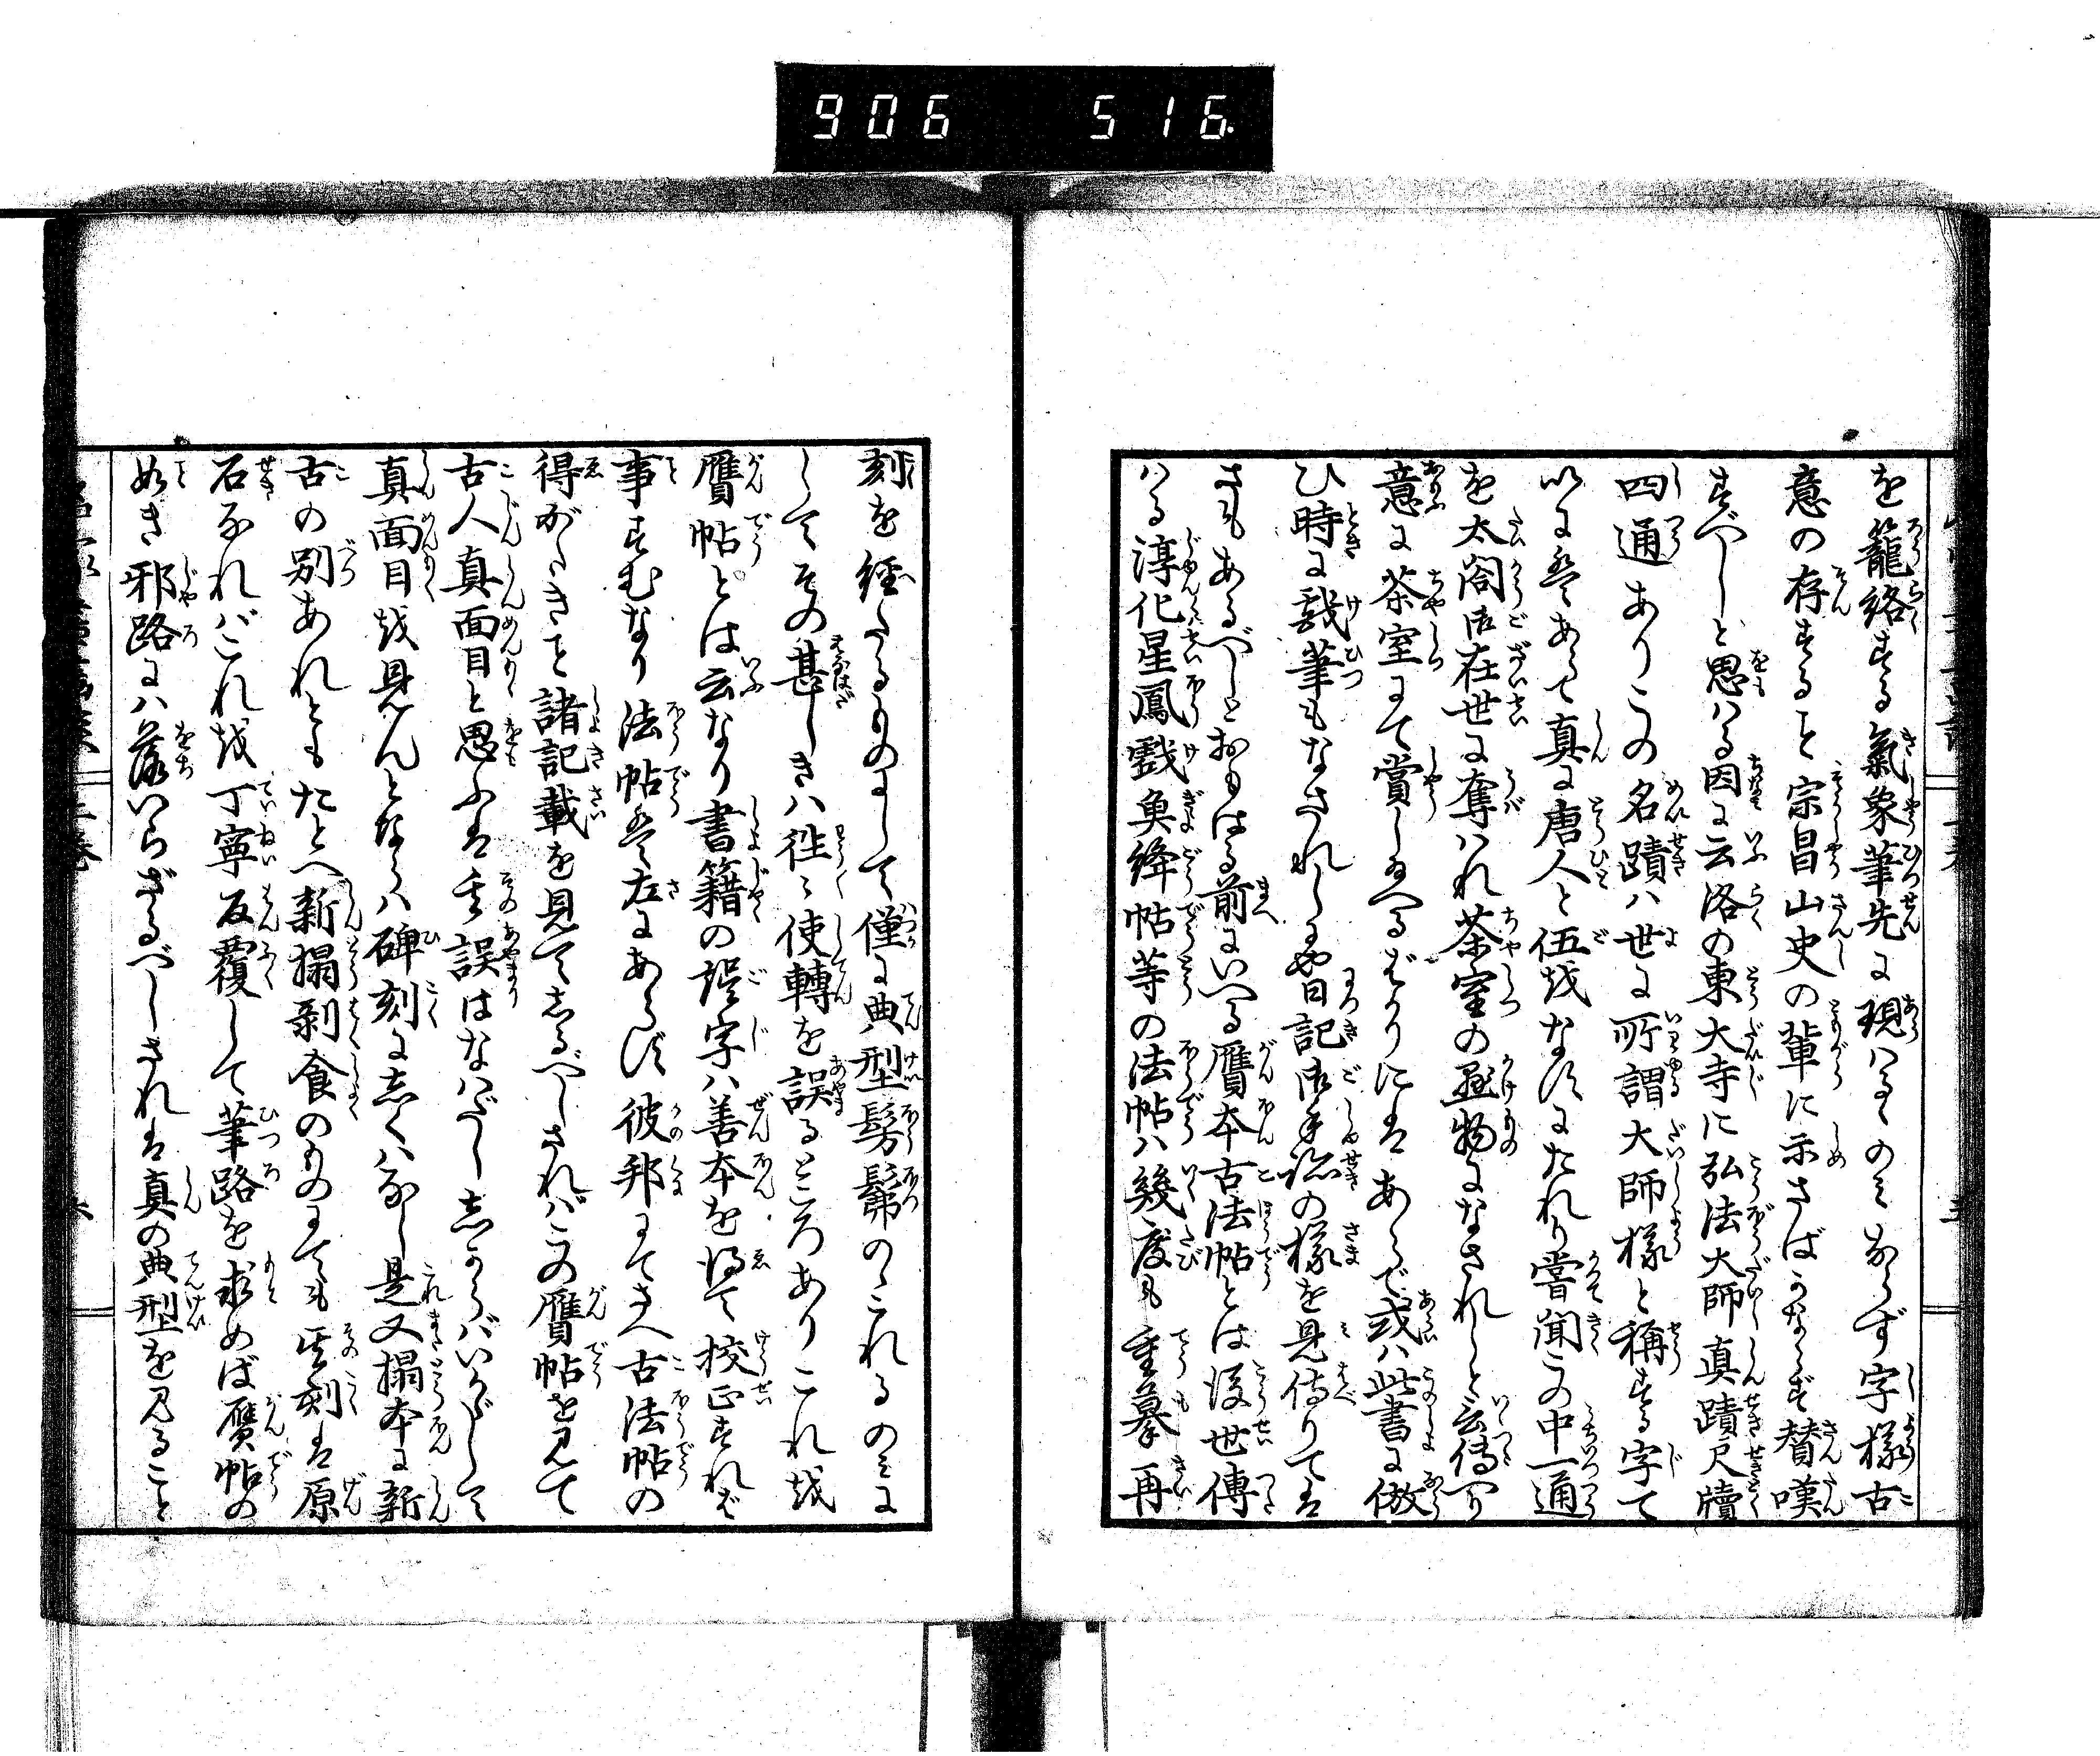 906 516
を籠絡する氣象筆先に現ハるゝのみならず字樣古
意の存すること宗昌山史の輩に示さばかならず賛嘆
すべしと思ハる因に云洛の東大寺に弘法大師真蹟尺牘
四通ありこの名蹟ハ世に所謂大師様と稱する字て
以に異あつて真に唐人と伍をなすにたれり嘗聞この中一通
を太閤御在世に奪ハれ茶室の懸物になされしと云傳へり
意に茶室にて賞し給へるばかりにはあらで或ハ此書に倣
ひ時に戯筆もなされしにや日記御手跡の様を見侍りては
さもあるべしとおもはる前にいへる贋本古法帖とは後世傳
ハる淳化星鳳戲魚絳帖等の法帖ハ幾度も重摹再
刻を經たるものにして僅に典型髣髴のこれるのみに
してその甚しきハ往々使轉を誤るところありこれを
贋帖とは云なり書籍の誤字ハ善本を得て挍正すれば
事すむなり法帖は左にあらず彼邦にてさへ古法帖の
得がたきこと諸記載を見てしるべしされバこの贋帖を見て
古人真面目と思ふは其誤はなハだし志からバいかゞして
真面目を見んとならハ碑刻に志くハなし是又搨本に新
古の別あれともたとへ新搨剥食のものにても其刻は原
石なれバこれを丁寧反覆して筆路を求めば贋帖の
如き邪路にハ落いらざるべしされは真の典型を見ること